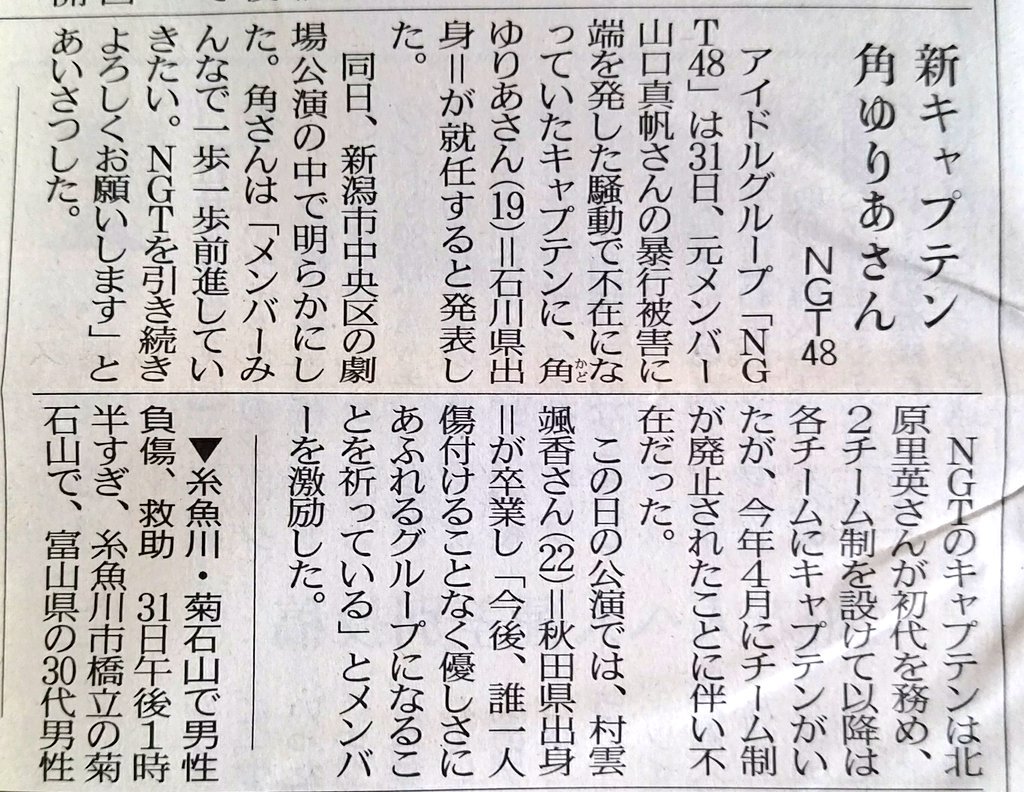 新キャプテン
角ゆりあさん
NGT48
アイドルグループ「NG
T48」は31日、元メンバー
山口真帆さんの暴行被害に
端を発した騒動で不在にな
っていたキャプテンに、角かど
ゆりあさん(19)＝石川県出
身＝が就任すると発表し
た。
同日、新潟市中央区の劇
場公演の中で明らかにし
た。角さんは「メンバーみ
んなで一歩一歩前進してい
きたい。NGTを引き続き
よろしくお願いします」と
あいさつした。
NGTのキャプテンは北
原里英さんが初代を務め、
2チーム制を設けて以降は
各チームにキャプテンがい
たが、今年4月にチーム制
が廃止されたことに伴い不
在だった。
この日の公演では、村雲
颯香さん(22)＝秋田県出身
＝が卒業し「今後、誰一人
傷付けることなく優しさに
あふれるグループになるこ
とを祈っている」とメンバ
ーを激励した。
▼糸魚川・菊石山で男性
負傷、救助 31日午後1時
半すぎ、糸魚川市橋立の菊
石山で、富山県の30代男性